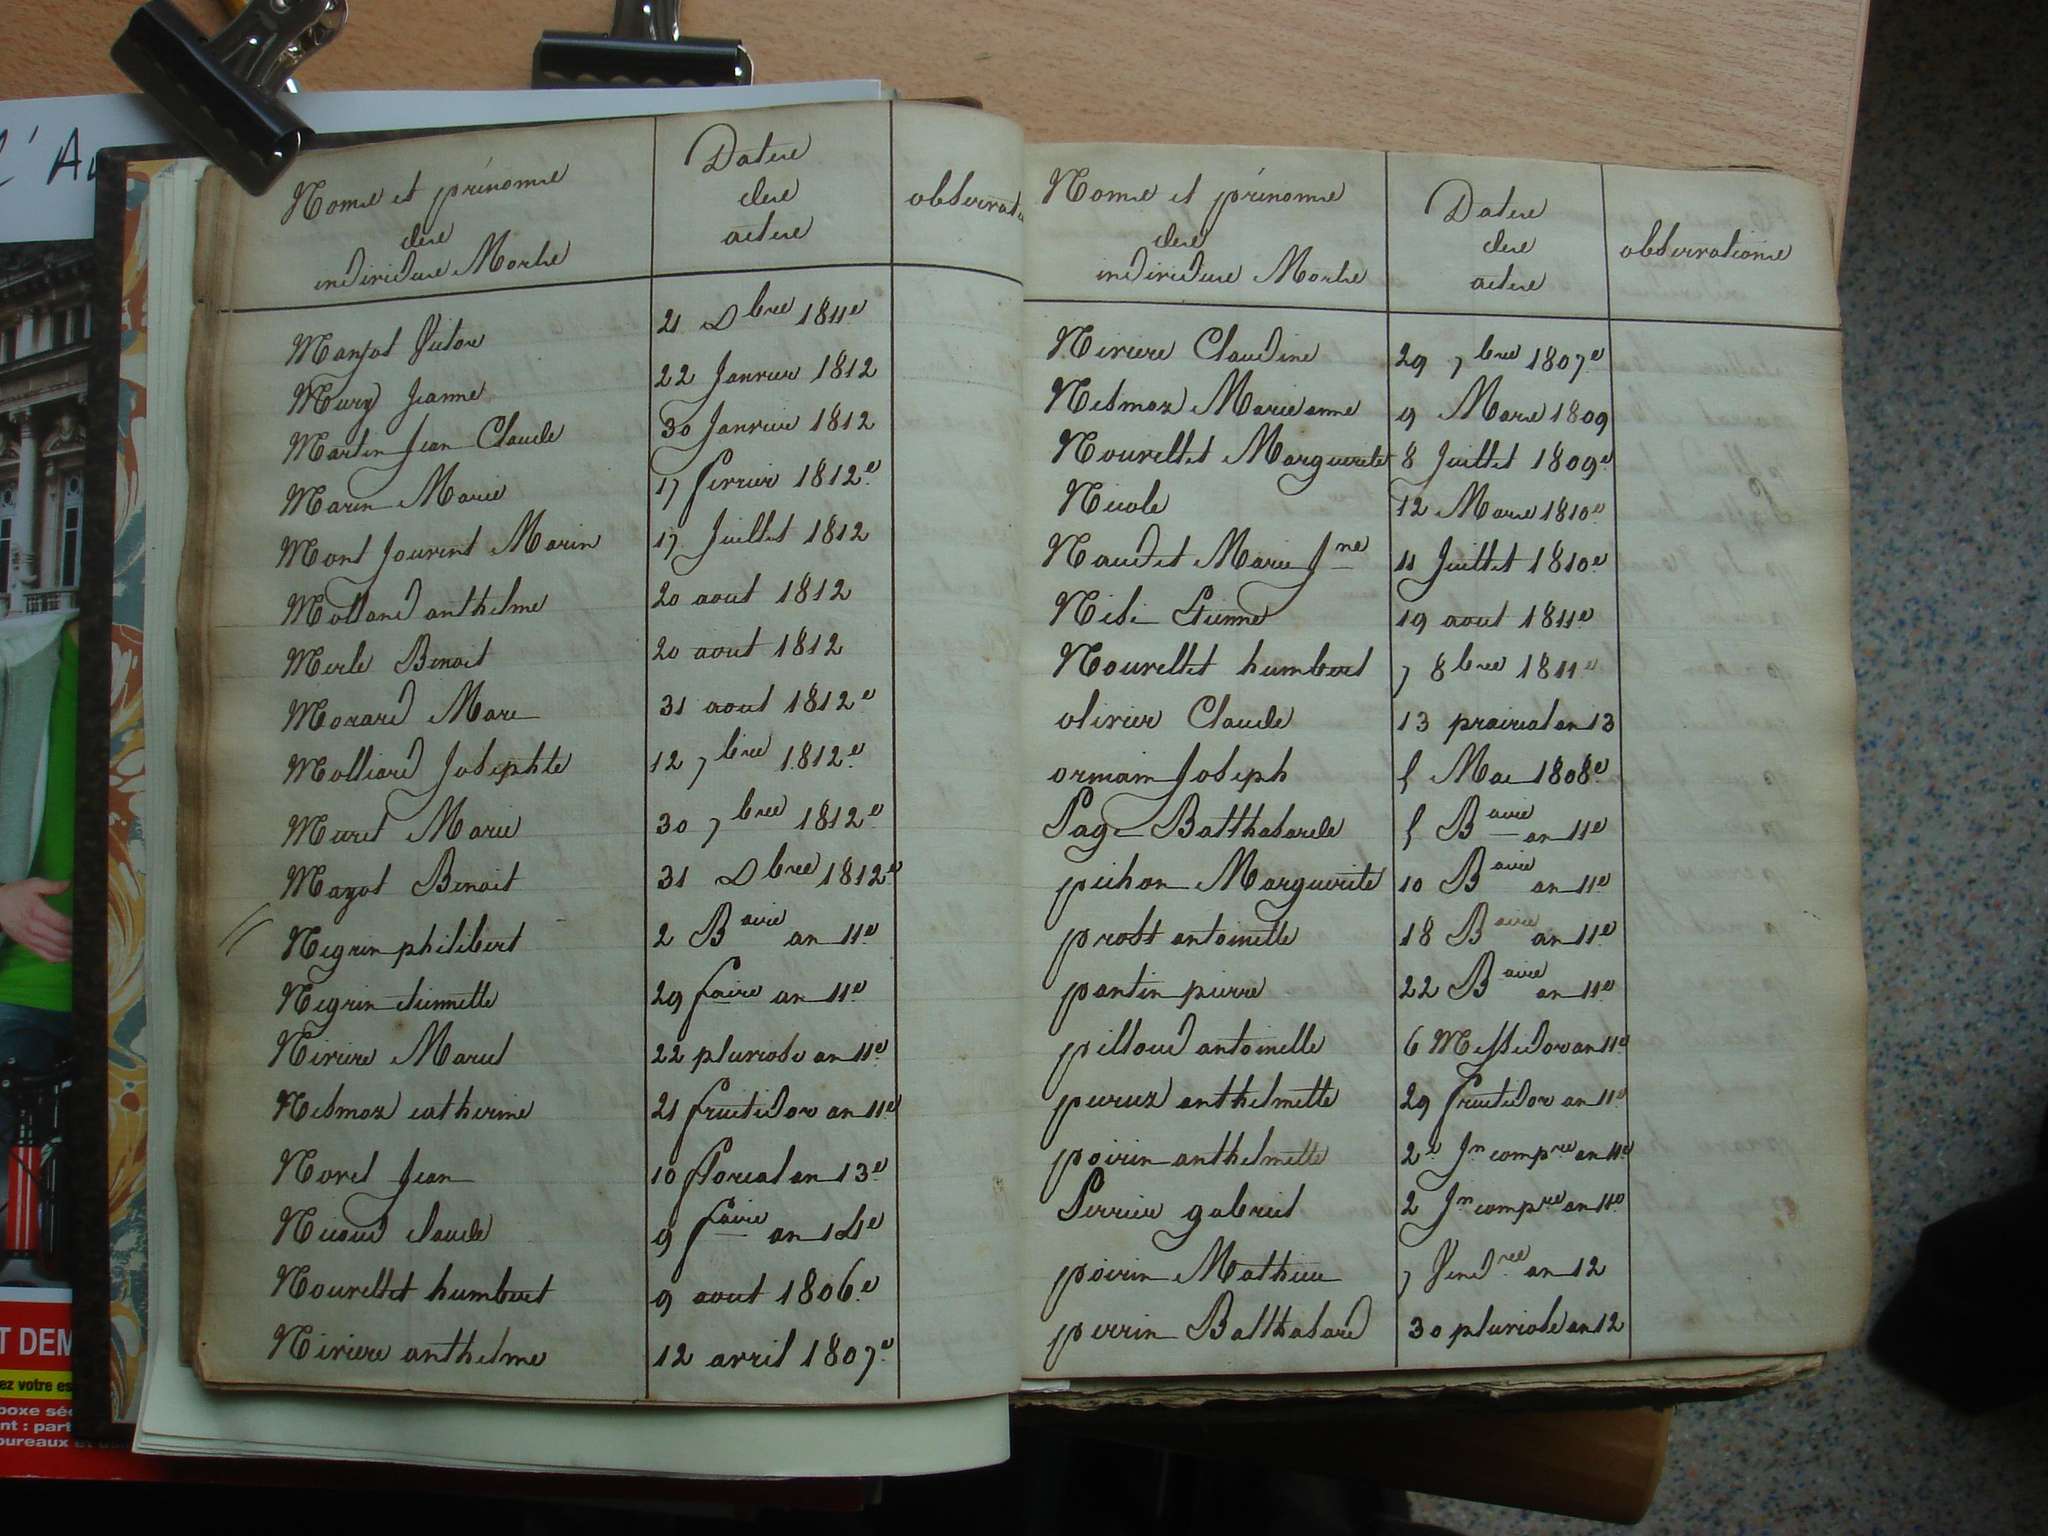 l'A
Noms et prénoms
des
individus Morts
Dates
des
actes
observatio
Manjot Victor
21 Dbre 1811
Mury Jeanne
22 Janvier 1812
Martin Jean Claude
30 Janvier 1812
Marin Marie
17 fevrier 1812
Mont Jouvent Marin
17 Juillet 1812
Molland anthelme
20 aout 1812
Merle Benoit
20 aout 1812
Morard Marc
31 aout 1812
Molliard Josephte
12 7bre 1812
Muret Marie
30 7bre 1812
Mayot Benoit
31 Dbre 1812
Negrin philibert
2 Baire an 11
Negrin etiennette
29 faire an 11
Niviere Marie
22 pluviose an 11
Nesmoz catherine
21 fructidor an 11
Novel Jean
10 floreal an 13
Nicoud claude
9 faire an 14
Nouvellet humbert
9 aout 1806
Niviere anthelme
12 avril 1807
Noms et prénoms
des
individus Morts
Dates
des
actes
observations
Niviere Claudine
29 7bre 1807
Nesmoz Marie anne
9 Mars 1809
Nouvellet Marguerite
8 Juillet 1809
Nicole
12 Mars 1810
Naudet Marie Jne
11 Juillet 1810
Nesi Etienne
19 aout 1811
Nouvellet humbert
7 8bre 1811
olivier Claude
13 prairial an 13
ormain Joseph
5 Mai 1808
Page Balthasarde
5 Baire an 11
pichon Marguerite
10 Baire an 11
prost antoinette
18 Baire an 11
pantin pierre
22 Baire an 11
pilloud antoinette
6 Messidor an 11
peruz anthelmette
29 fructidor an 11
poivin anthelmette
2e Jn compre an 11
Perrier gabriel
2 Jn compre an 11
poivin Mathieu
7 Vendre an 12
perrin Balthasard
30 pluviose an 12
T DEM
ez votre es
boxe sé
nt : part
bureaux et